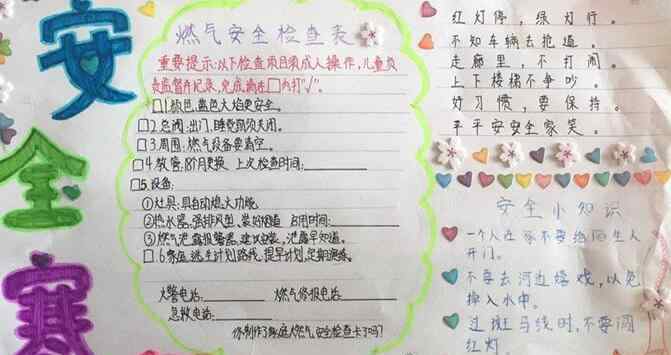 安全寒
燃气安全检查表
重要提示:以下检查项目须成人操作,儿童负
责监督并记录,完成请在□内打"√"。
□1.颜色:蓝色火焰更安全。
□2.总阀:出门、睡觉须关闭。
□3.周围:燃气设备要清空。
□4.软管:18个月更换 上次检查时间:
□5.设备:
①灶具:具自动熄火功能
②热水器:强排风型,装好烟道 启用时间:
③燃气泄露报警器:建议安装,泄露早知道。
□.6.务必:逃生计划路线,提早计划,定期演练。
火警电话: 燃气修报电话:
急救电话:
你制作了家庭燃气安全检查卡了吗?
红灯停,绿灯行。
不知车辆去抢道。
走廊里,不打闹。
上下楼梯不争吵。
好习惯,要保持。
平平安安全家笑。
安全小知识
一个人在家不要给陌生人
开门。
不要去河边嬉戏,以免
掉入水中。
过斑马线时,不要闯
红灯。